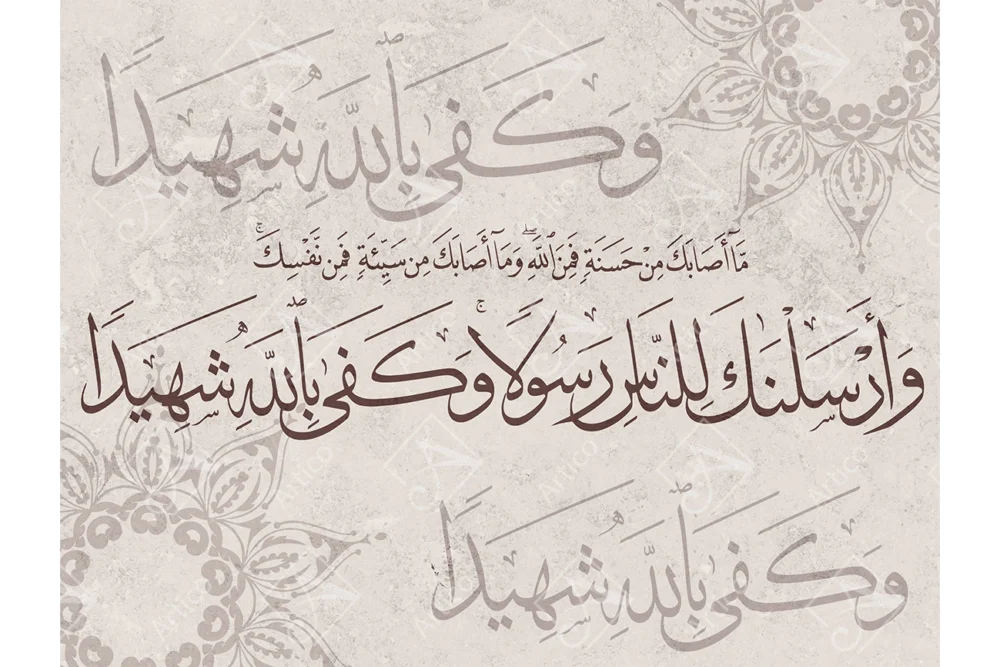 وَكَفَىٰ بِاللَّهِ شَهِيدًا
مَّا أَصَابَكَ مِنْ حَسَنَةٍ فَمِنَ ٱللَّهِ ۖ وَمَا أَصَابَكَ مِن سَيِّئَةٍ فَمِن نَّفْسِكَ ۚ
وَأَرْسَلْنَكَ لِلنَّاسِ رَسُولًا ۚ وَكَفَىٰ بِاللَّهِ شَهِيدًا
وَكَفَىٰ بِاللَّهِ شَهِيدًا
Artico